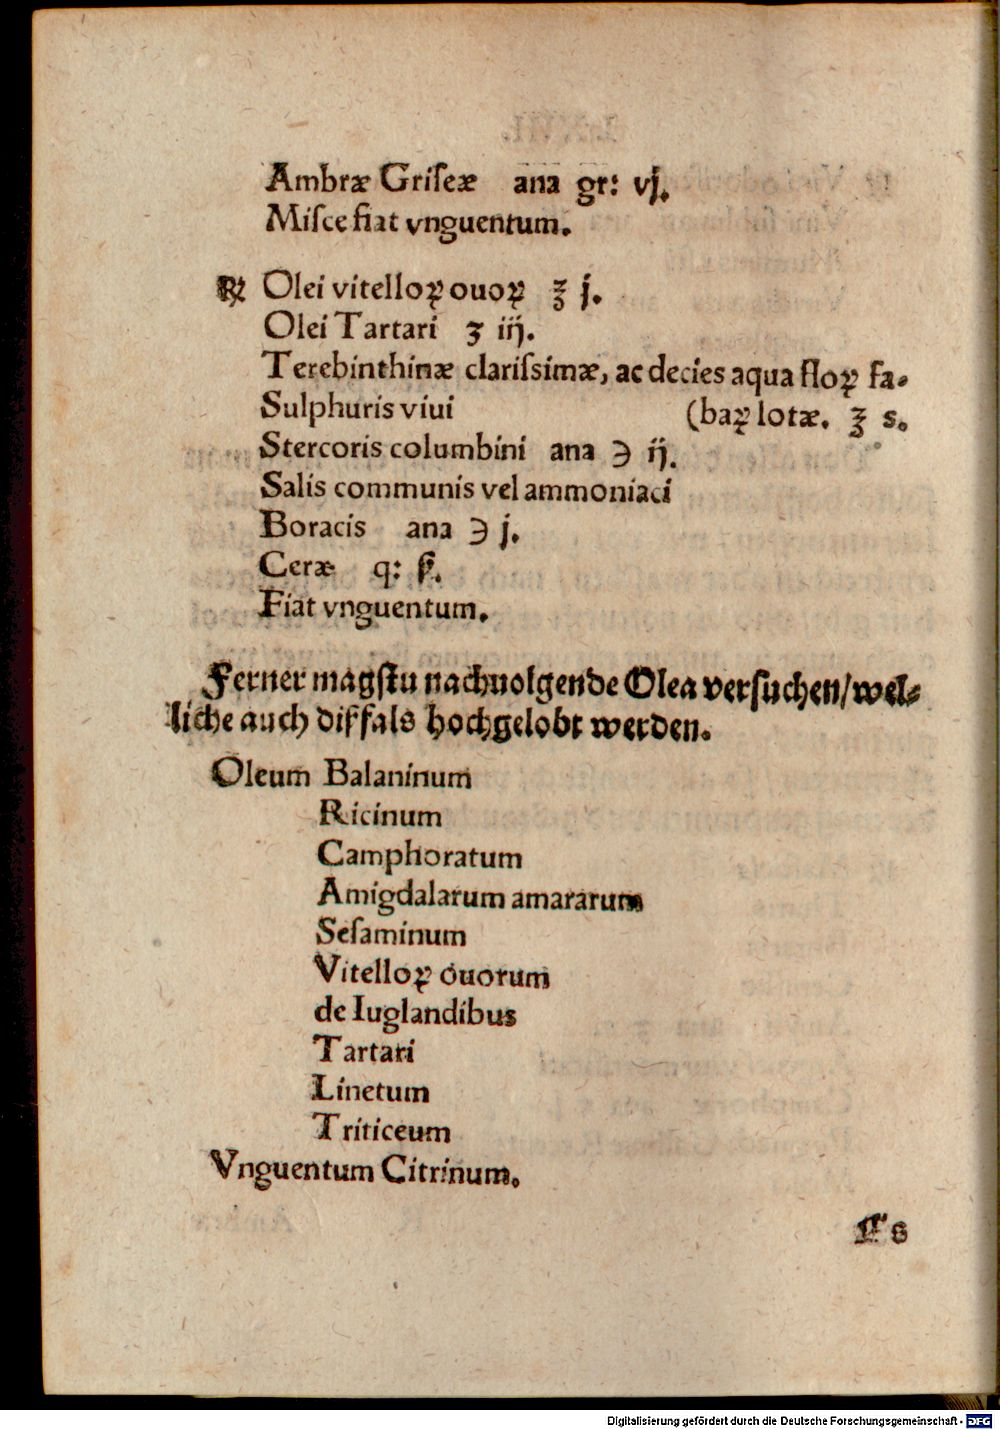 Ambræ Griſeæ ana gr: vj.
Miſce fiat vnguentum.
℞ Olei vitelloꝝ ouoꝝ ℥ j.
Olei Tartari ʒ iij.
Terebinthinæ clariſsimæ, ac decies aqua floꝝ fa-
Sulphuris viui (baꝝ lotæ. ℥ s.
Stercoris columbini ana ℈ ij.
Salis communis vel ammoniaci
Boracis ana ℈ j.
Ceræ q: ſ.
Fiat vnguentum.
Ferner magſtu nachuolgende Olea verſuchen/ wel-
liche auch diſfals hochgelobt werden.
Oleum Balaninum
Ricinum
Camphoratum
Amigdalarum amararum
Seſaminum
Vitelloꝝ ouorum
de Iuglandibus
Tartari
Linetum
Triticeum
Vnguentum Citrinum.
Es
Digitalisierung gefördert durch die Deutsche Forschungsgemeinschaft - DFG